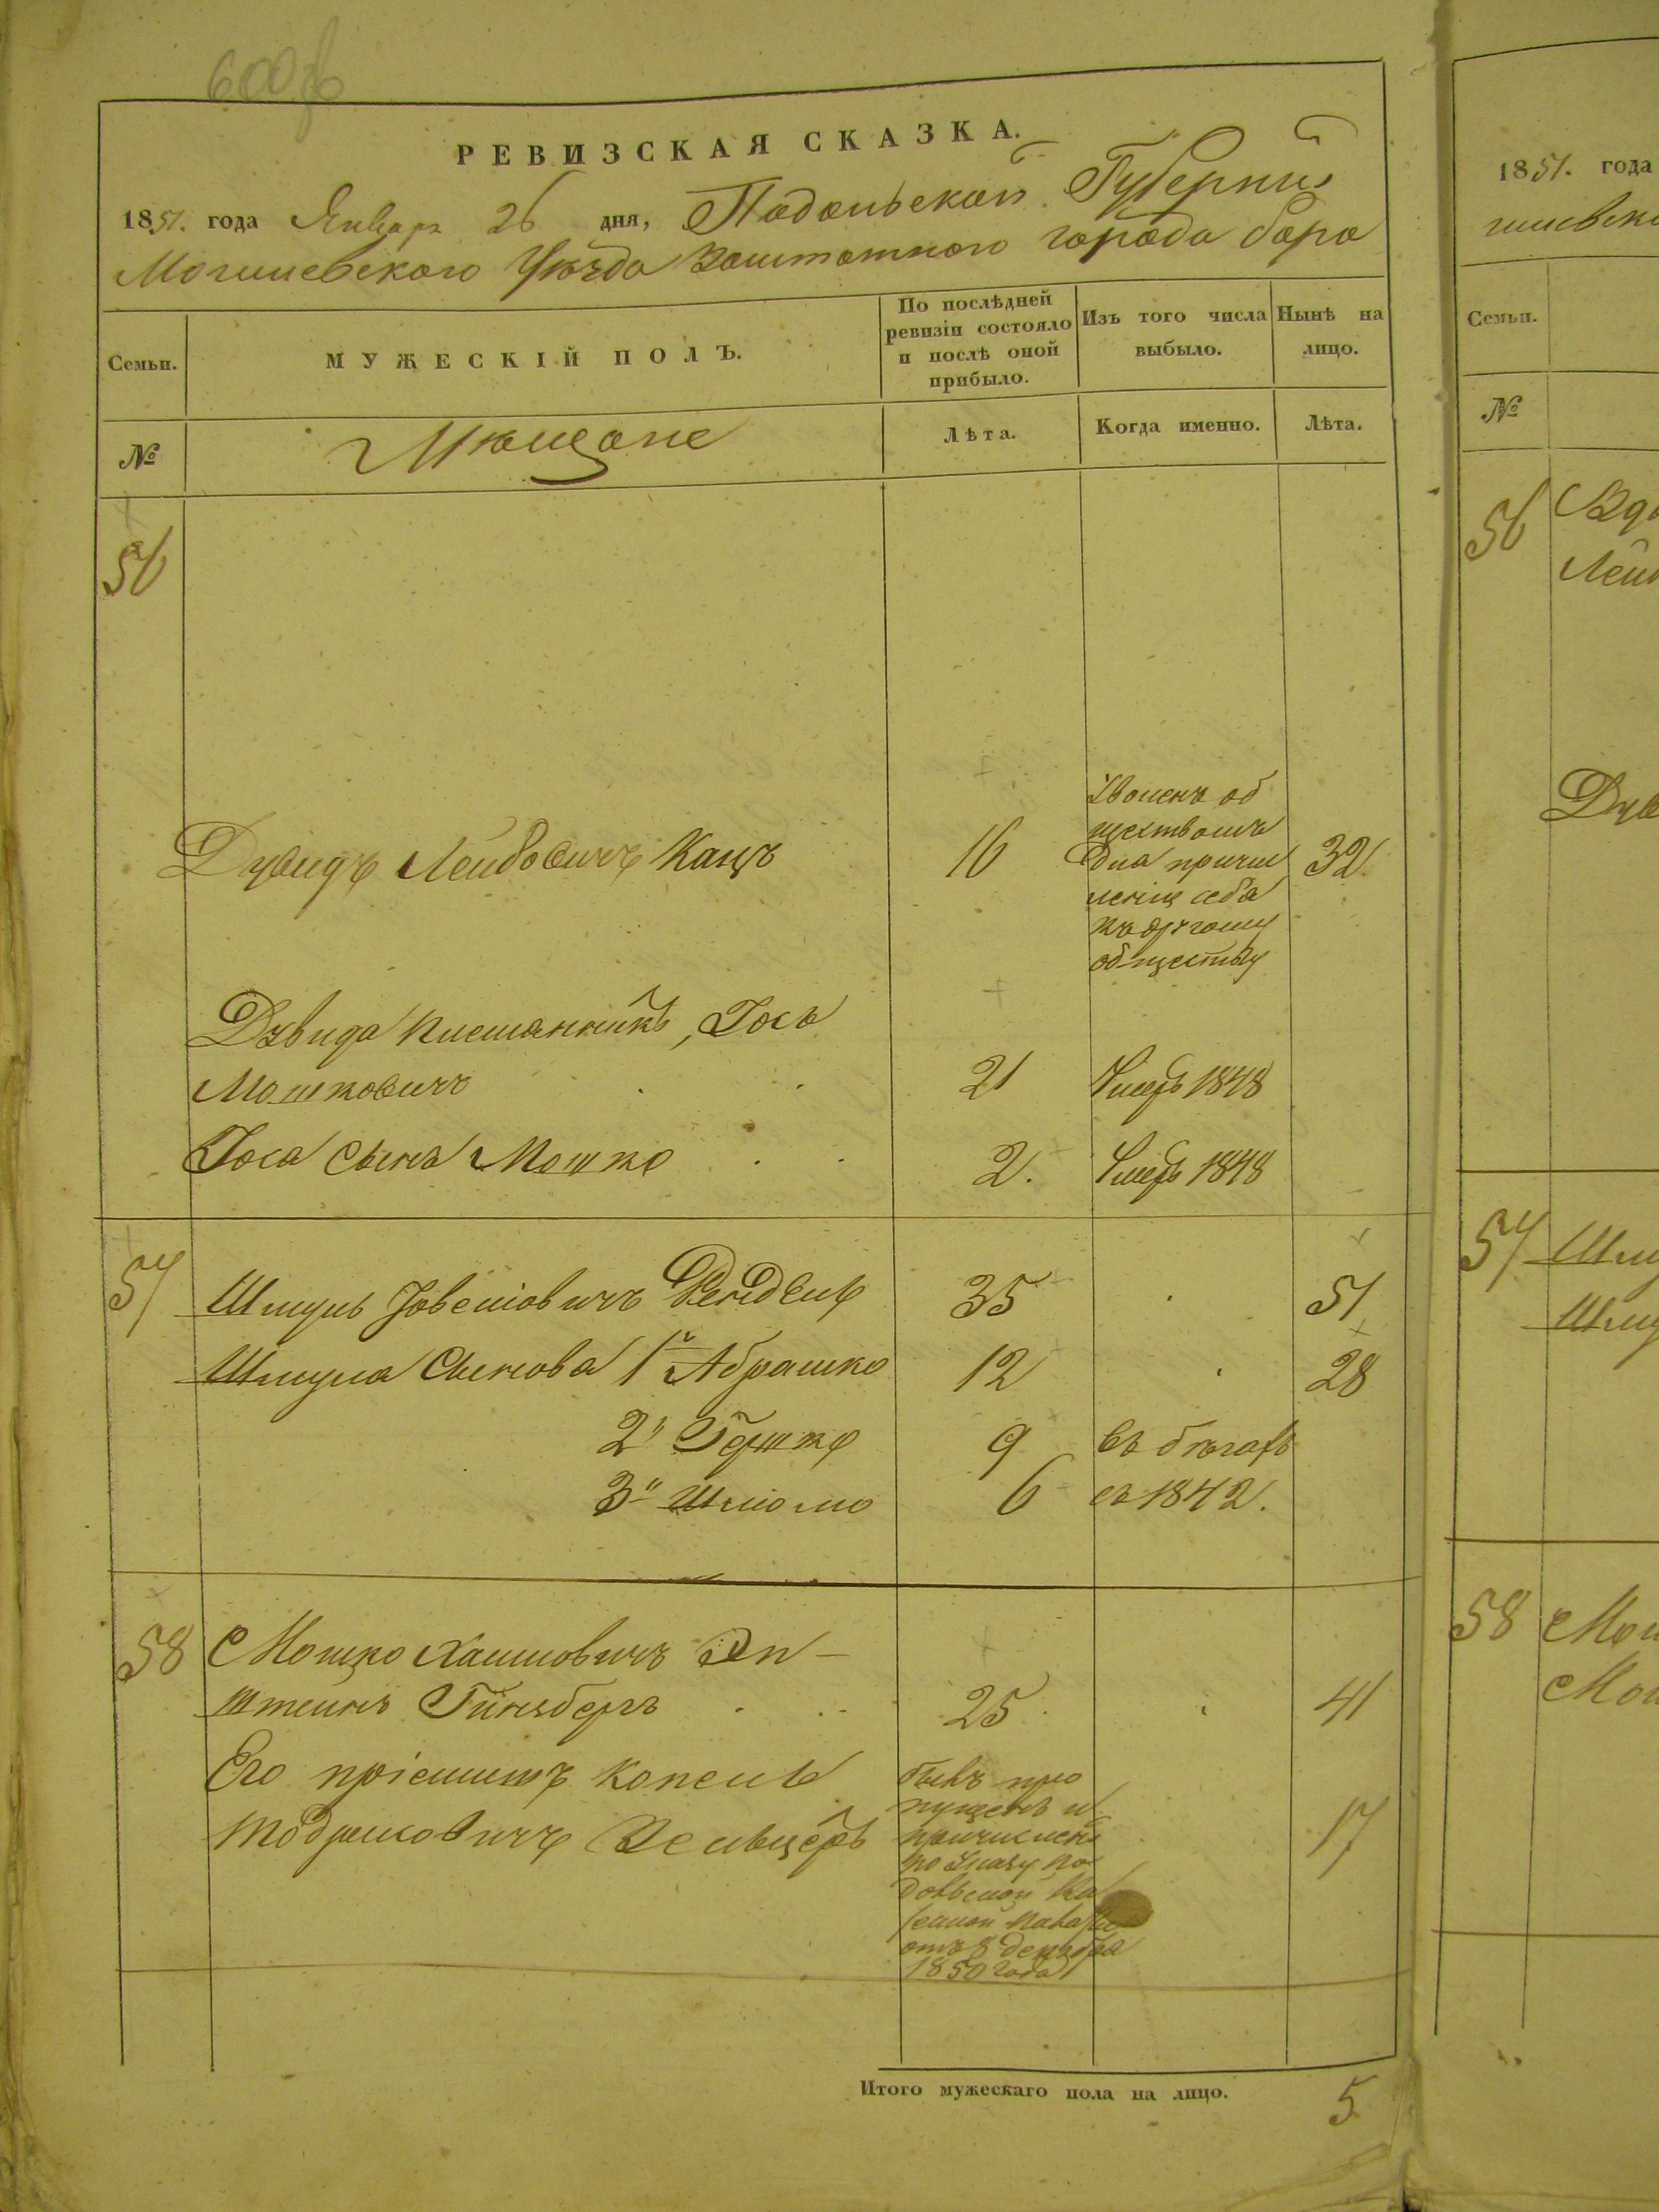 600 об
РЕВИЗСКАЯ СКАЗКА.
1851. года Января 26 дня, Подольской Губерніи
Могилевского Уѣзда Заштатного города бара
Семьи.
МУЖЕСКІЙ ПОЛЪ.
По послѣдней ревизіи состояло и послѣ оной прибыло.
Изъ того числа выбыло.
Нынѣ на лицо.
№
Мѣщане
Лѣта.
Когда именно.
Лѣта.
56
Дувидъ Лейбовичъ Кацъ 16 32.
Уволенъ об
ществомъ
для причи
ленія себя
къ другому
обществу
Дувида племянникъ, Іось
Мошковичъ 21 Умеръ 1848
Іося сынъ Мошко 2. Умеръ 1848
57
Шмуль 35 51
Шмуля Сыновя 1й Абрашко 12 28
2й Гершко 9 въ бѣгахъ
3й Шліомо 6 съ 1842.
58
Мошко Хаимовичъ Эп-
штейнъ Гинзбергъ 25 41
Его пріемышъ Копель
17
былъ про
пущенъ и
причисленъ
по Указу По
дольской Ка
зенной Палаты
отъ 8 декабря
1850 года
Итого мужескаго пола на лицо. 5
1851. года
Семьи.
№
56
57
58